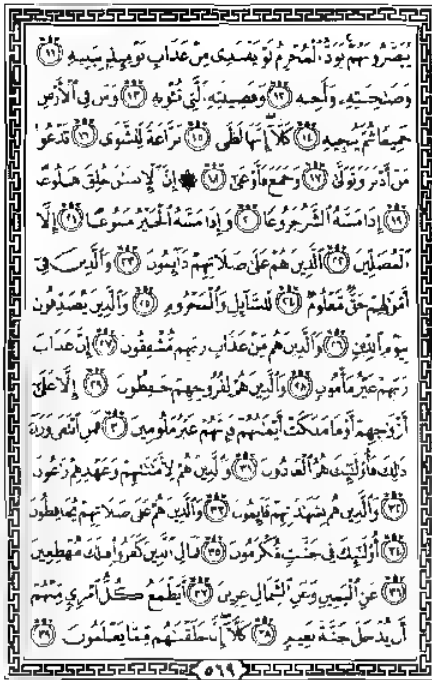 يُبَصَّرُونَهُمْ يَوَدُّ الْمُجْرِمُ لَوْ يَفْتَدِى مِنْ عَذَابِ يَوْمِئِذٍ بِبَنِيهِ ١١
وَصَاحِبَتِهِ وَأَخِيهِ ١٢ وَفَصِيلَتِهِ الَّتِى تُـْٔوِيهِ ١٣ وَمَن فِى الْأَرْضِ
جَمِيعًا ثُمَّ يُنجِيهِ ١٤ كَلَّا إِنَّهَا لَظَى ١٥ نَزَّاعَةً لِّلشَّوَى ١٦ تَدْعُوا
مَنْ أَدْبَرَ وَتَوَلَّى ١٧ وَجَمَعَ فَأَوْعَى ١٨ ۞ إِنَّ الْإِنسَٰنَ خُلِقَ هَلُوعًا
١٩ إِذَا مَسَّهُ الشَّرُّ جَزُوعًا ٢٠ وَإِذَا مَسَّهُ الْخَيْرُ مَنُوعًا ٢١ إِلَّا
الْمُصَلِّينَ ٢٢ الَّذِينَ هُمْ عَلَى صَلَاتِهِمْ دَائِمُونَ ٢٣ وَالَّذِينَ فِى
أَمْوَٰلِهِمْ حَقٌّ مَّعْلُومٌ ٢٤ لِّلسَّائِلِ وَالْمَحْرُومِ ٢٥ وَالَّذِينَ يُصَدِّقُونَ
بِيَوْمِ الدِّينِ ٢٦ وَالَّذِينَ هُم مِّنْ عَذَابِ رَبِّهِم مُّشْفِقُونَ ٢٧ إِنَّ عَذَابَ
رَبِّهِمْ غَيْرُ مَأْمُونٍ ٢٨ وَالَّذِينَ هُمْ لِفُرُوجِهِمْ حَٰفِظُونَ ٢٩ إِلَّا عَلَى
أَزْوَٰجِهِمْ أَوْ مَا مَلَكَتْ أَيْمَٰنُهُمْ فَإِنَّهُمْ غَيْرُ مَلُومِينَ ٣٠ فَمَنِ ابْتَغَى وَرَاءَ
ذَٰلِكَ فَأُولَٰئِكَ هُمُ الْعَادُونَ ٣١ وَالَّذِينَ هُمْ لِأَمَٰنَٰتِهِمْ وَعَهْدِهِمْ رَٰعُونَ
٣٢ وَالَّذِينَ هُم بِشَهَٰدَٰتِهِمْ قَائِمُونَ ٣٣ وَالَّذِينَ هُمْ عَلَى صَلَاتِهِمْ يُحَافِظُونَ
٣٤ أُولَٰئِكَ فِى جَنَّٰتٍ مُّكْرَمُونَ ٣٥ فَمَالِ الَّذِينَ كَفَرُوا قِبَلَكَ مُهْطِعِينَ
٣٦ عَنِ الْيَمِينِ وَعَنِ الشِّمَالِ عِزِينَ ٣٧ أَيَطْمَعُ كُلُّ امْرِئٍ مِّنْهُمْ
أَن يُدْخَلَ جَنَّةَ نَعِيمٍ ٣٨ كَلَّا إِنَّا خَلَقْنَٰهُم مِّمَّا يَعْلَمُونَ ٣٩
٥٦٩